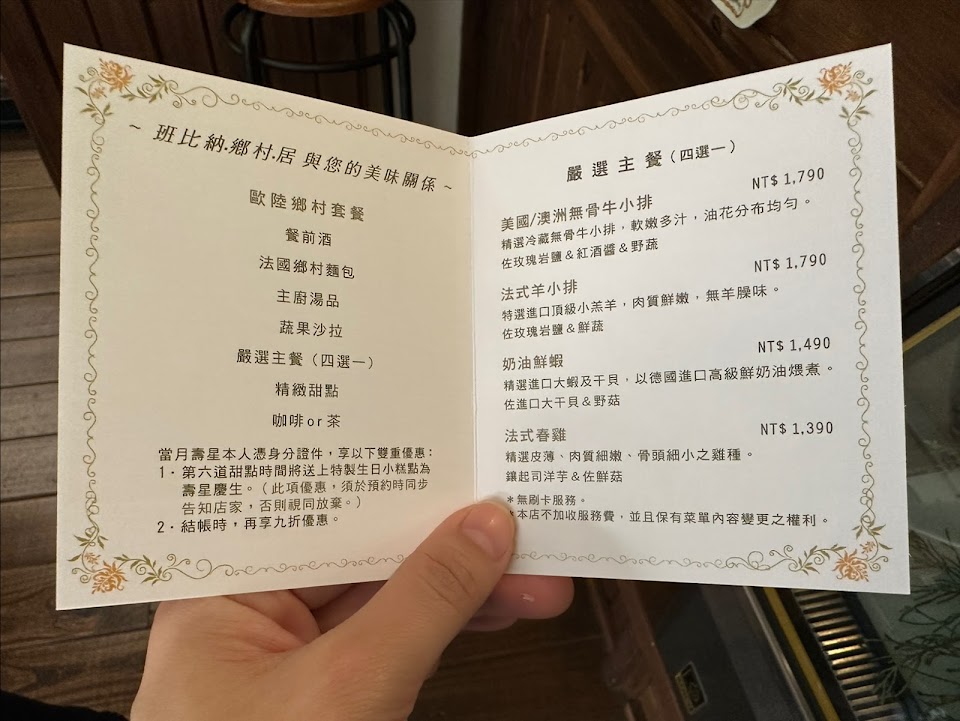 ~ 班比納.鄉村.居 與您的美味關係 ~
歐陸鄉村套餐
餐前酒
法國鄉村麵包
主廚湯品
蔬果沙拉
嚴選主餐（四選一）
精緻甜點
咖啡or茶
當月壽星本人憑身分證件，享以下雙重優惠：
1．第六道甜點時間將送上特製生日小糕點為
壽星慶生。（此項優惠，須於預約時同步
告知店家，否則視同放棄。）
2．結帳時，再享九折優惠。
嚴選主餐（四選一）
NT$ 1,790
美國/澳洲無骨牛小排
精選冷藏無骨牛小排，軟嫩多汁，油花分布均勻。
佐玫瑰岩鹽＆紅酒醬＆野蔬
NT$ 1,790
法式羊小排
特選進口頂級小羔羊，肉質鮮嫩，無羊臊味。
佐玫瑰岩鹽＆鮮蔬
NT$ 1,490
奶油鮮蝦
精選進口大蝦及干貝，以德國進口高級鮮奶油煨煮。
佐進口大干貝＆野菇
NT$ 1,390
法式春雞
精選皮薄、肉質細嫩、骨頭細小之雞種。
鑲起司洋芋＆佐鮮菇
＊無刷卡服務。
＊本店不加收服務費，並且保有菜單內容變更之權利。